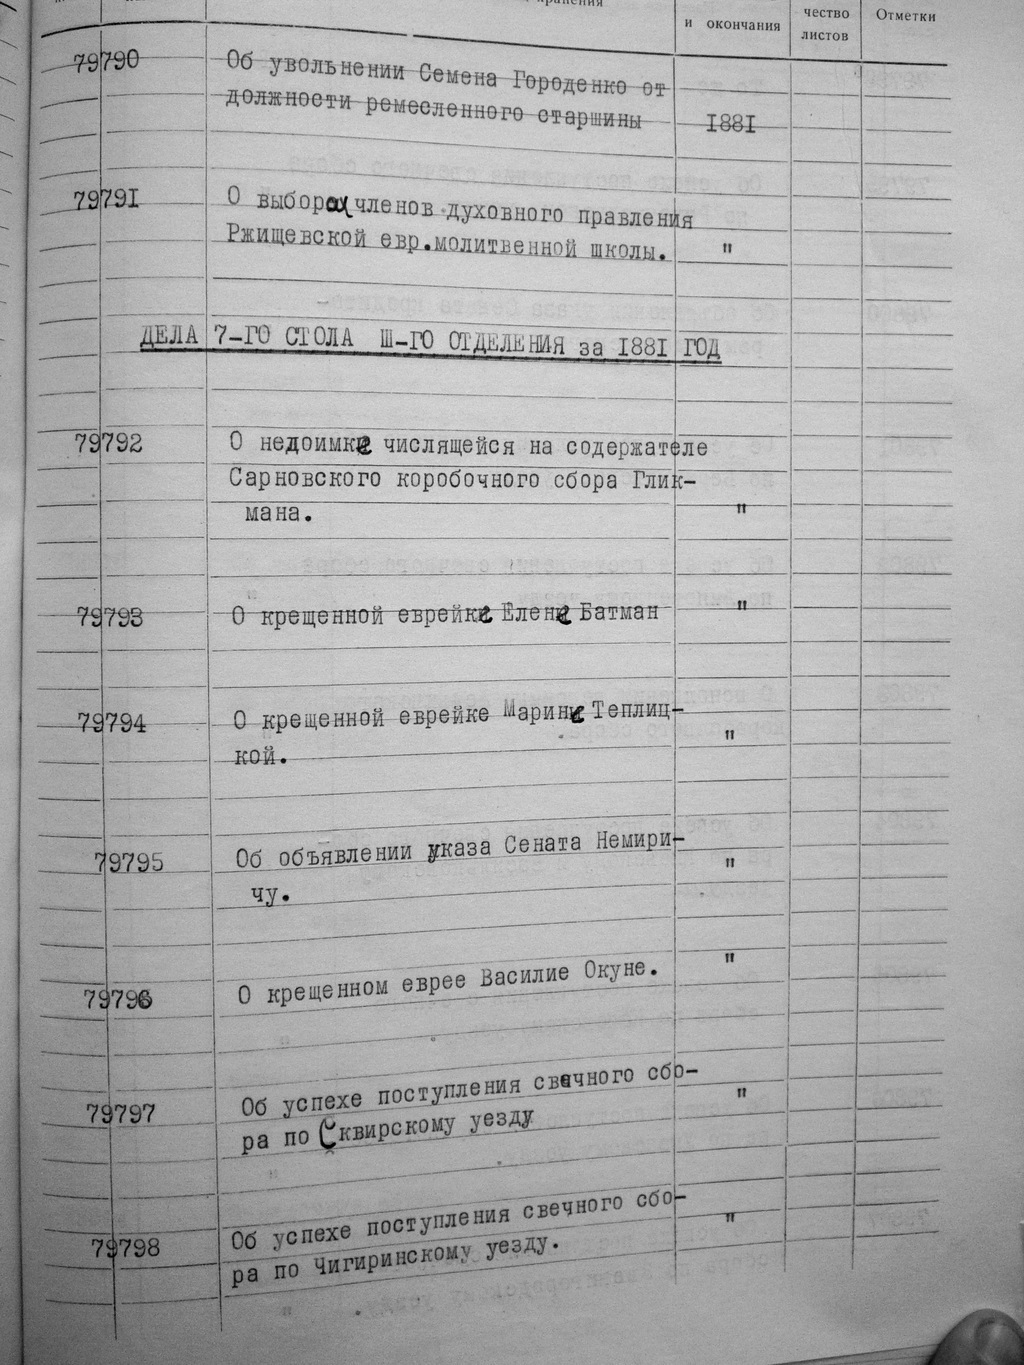 хранения
и окончания
чество
листов
Отметки
79790 Об увольнении Семена Городенко от
должности ремесленного старшины 1881
79791 О выборах членов духовного правления
Ржищевской евр.молитвенной школы. "
ДЕЛА 7-ГО СТОЛА Ш-ГО ОТДЕЛЕНИЯ за 1881 ГОД
79792 О недоимке числящейся на содержателе
Сарновского коробочного сбора Глик-
мана. "
79793 О крещенной еврейке Елене Батман "
79794 О крещенной еврейке Марине Теплиц-
кой. "
79795 Об объявлении указа Сената Немири-
чу. "
79796 О крещенном еврее Василие Окуне. "
79797 Об успехе поступления свечного сбо-
ра по Сквирскому уезду "
79798 Об успехе поступления свечного сбо-
ра по Чигиринскому уезду. "